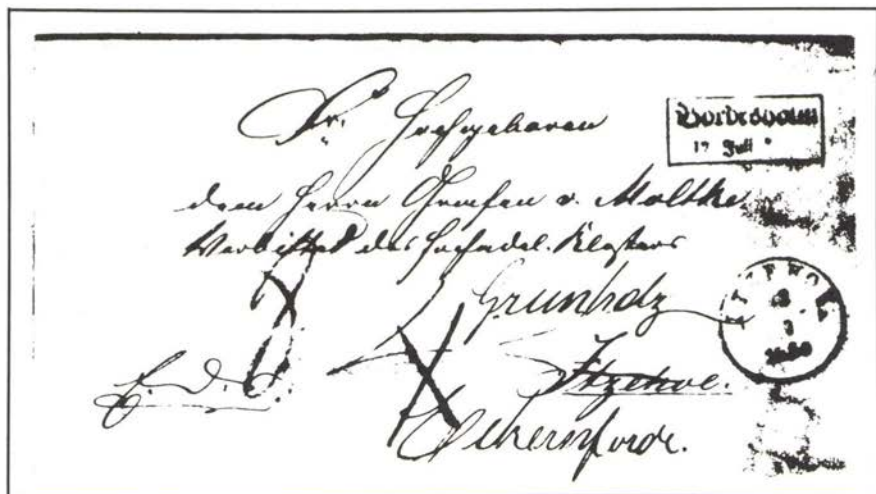 Sr. Hochgeboren
Bordesholm
17 Juli
dem Herrn Grafen v. Moltke
Verbitter des hochadel. Klosters
Grünholz
ITZEHOE
Itzehoe.
Eckernförde.